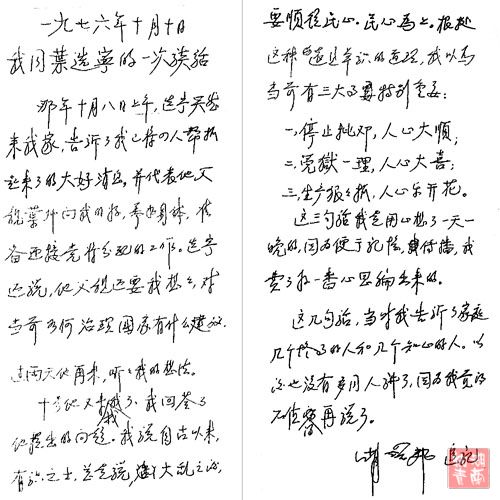 一九七六年十月十日
我同葉选寧的一次談話
那年十月八日上午，选宁突然
来我家，告诉了我已将四人帮抓
起来了的大好消息。并代表他父
親葉帅向我问好，养好身体，准
备迎接党将分配的工作。选宁
还说，他父親还要我想想，对
当前如何治理国家有什么建议，
过两天他再来，听听我的想法。
十日他又来我家，我回答了
他提出的问题。我说自古以来，
有识之士，总是说，大乱之后，
要顺从民心。民心为上。根据
这种远见卓识的道理，我以为
当前有三大要事特别重要：
一、停止批邓，人心大顺；
二、冤獄一理，人心大喜；
三、生产狠狠抓，人心乐开花。
这三句话我是用心想了一天一
晚的，因为便于记忆，传播，我
费了我一番心思编出来的。
这几句话，当时我告诉了家庭
几个接近的人和几个知心的人。以
后也没有多同人讲了，因为我真的
不值得再说了。
胡耀邦 追记